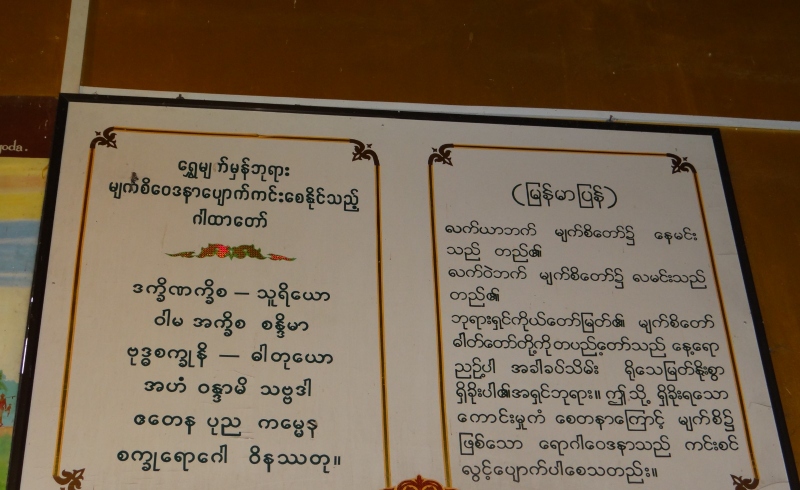 oda.
ရွှေမျက်မှန်ဘုရား
မျက်စိဝေဒနာပျောက်ကင်းစေနိုင်သည့်
ဂါထာတော်
ဒက္ခိဏက္ခိစ — သူရိယော
ဝါမ အက္ခိစ စန္ဒိမာ
ဗုဒ္ဓစက္ခုနိ — ဓါတုယော
အဟံ ဝန္ဒာမိ သဗ္ဗဒါ
ဧတေန ပုည ကမ္မေန
စက္ခုရောဂေါ ဝိနဿတု။
(မြန်မာပြန်)
လက်ယာဘက် မျက်စိတော်၌ နေမင်း
သည် တည်၏
လက်ဝဲဘက် မျက်စိတော်၌ လမင်းသည်
တည်၏
ဘုရားရှင်ကိုယ်တော်မြတ်၏ မျက်စိတော်
ဓါတ်တော်တို့ကိုတပည့်တော်သည် နေ့ရော
ညဉ့်ပါ အခါခပ်သိမ်း ရိုသေမြတ်နိုးစွာ
ရှိခိုးပါ၏အရှင်ဘုရား။ ဤသို့ ရှိခိုးရသော
ကောင်းမှုကံ စေတနာကြောင့် မျက်စိ၌
ဖြစ်သော ရောဂါဝေဒနာသည် ကင်းစင်
လွင့်ပျောက်ပါစေသတည်း။